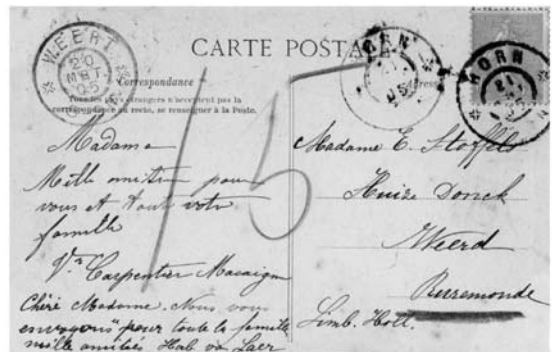 CARTE POSTALE
Correspondance
Tous les pays étrangers n'acceptent pas la
correspondance au recto, se renseigner à la Poste.
Adresse
WEERT
20
MRT
05
HORN
21
05
HORN
21
15
Madame
Mille amitiés pour
vous et toute votre
famille
Vve Carpentier Macaigne
Chère Madame. Nous vous
envoyons pour toute la famille
mille amitiés Hab van Laer
Madame E. Stoffels
Huize Donck
Weerd
Ruremonde
Limb. Holl.